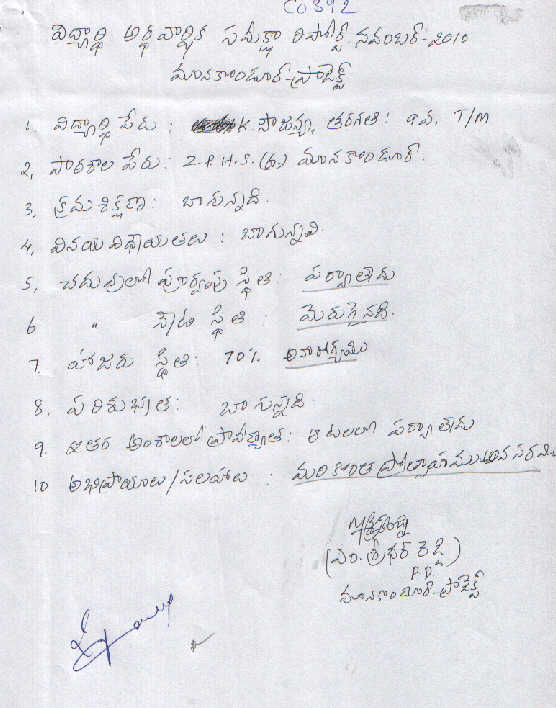 C0892
విద్యార్థి అర్థ వార్షిక సమీక్షా రిపోర్ట్ నవంబర్-2010
మానకొండూర్-ప్రాజెక్ట్
1. విద్యార్థి పేరు : K. సౌజన్య, తరగతి: T/M
2. పాఠశాల పేరు: Z.P.H.S. మానకొండూర్.
3. క్రమశిక్షణ: బాగున్నది.
4. వినయ విధేయతలు : బాగున్నవి.
5. చదువులో పూర్వపు స్థితి: పర్వాలేదు
6 " స్థితి : మెరుగైనది.
7. హాజరు స్థితి: 70% అనారోగ్యము
8. పరిశుభ్రత: బాగున్నది.
9. ఇతర అంశాలలో ప్రావీణ్యత: ఆటలలో పర్వాలేదు
10 అభిప్రాయాలు/సలహాలు : మరికొంత ప్రోత్సాహము
(ఎం. శ్రీధర్ రెడ్డి)
P.P
మానకొండూర్-ప్రాజెక్ట్